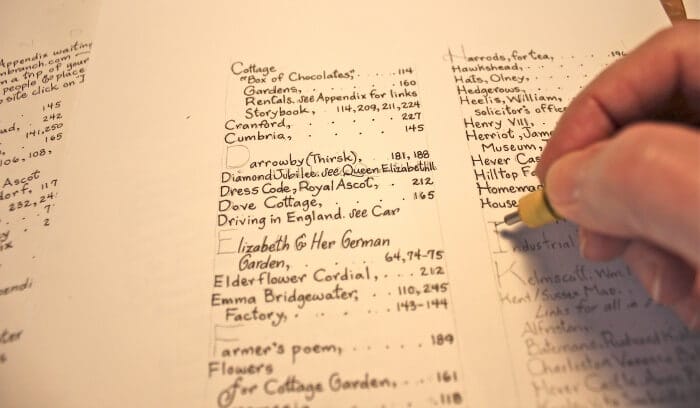 Appendix waiting
nbranch.com
n a map of your
people & place
site click on I
145
242
141,250
165
106, 108,
Ascot
dorf, 117
232, 24
7
2
Cottage
"Box of Chocolates," 114
Gardens, 160
Rentals. See Appendix for links
Storybook, 114, 209, 211, 224
Cranford, 227
Cumbria, 145
Darrowby (Thirsk), 181, 188
Diamond Jubilee. See Queen Elizabeth II
Dress Code, Royal Ascot, 212
Dove Cottage, 165
Driving in England. See Car
Elizabeth & Her German
Garden, 64, 74-75
Elderflower Cordial, 212
Emma Bridgewater, 110, 245
Factory, 143-144
Farmer's poem, 189
Flowers
for Cottage Garden, 161
118
Harrods, for tea,
Hawkshead,
Hats, Olney,
Hedgerows,
Heelis, William,
Solicitor's office
Henry VIII,
Herriot, Jame
Museum,
Hever Cas
Hilltop Fa
Homema
House
Industrial
Kelmscott. Wm.
Kent/Sussex Map.
Links for all
Alfriston
Batemans, Rudyard K
Charleston, Vanessa
Hever Castle, Anne